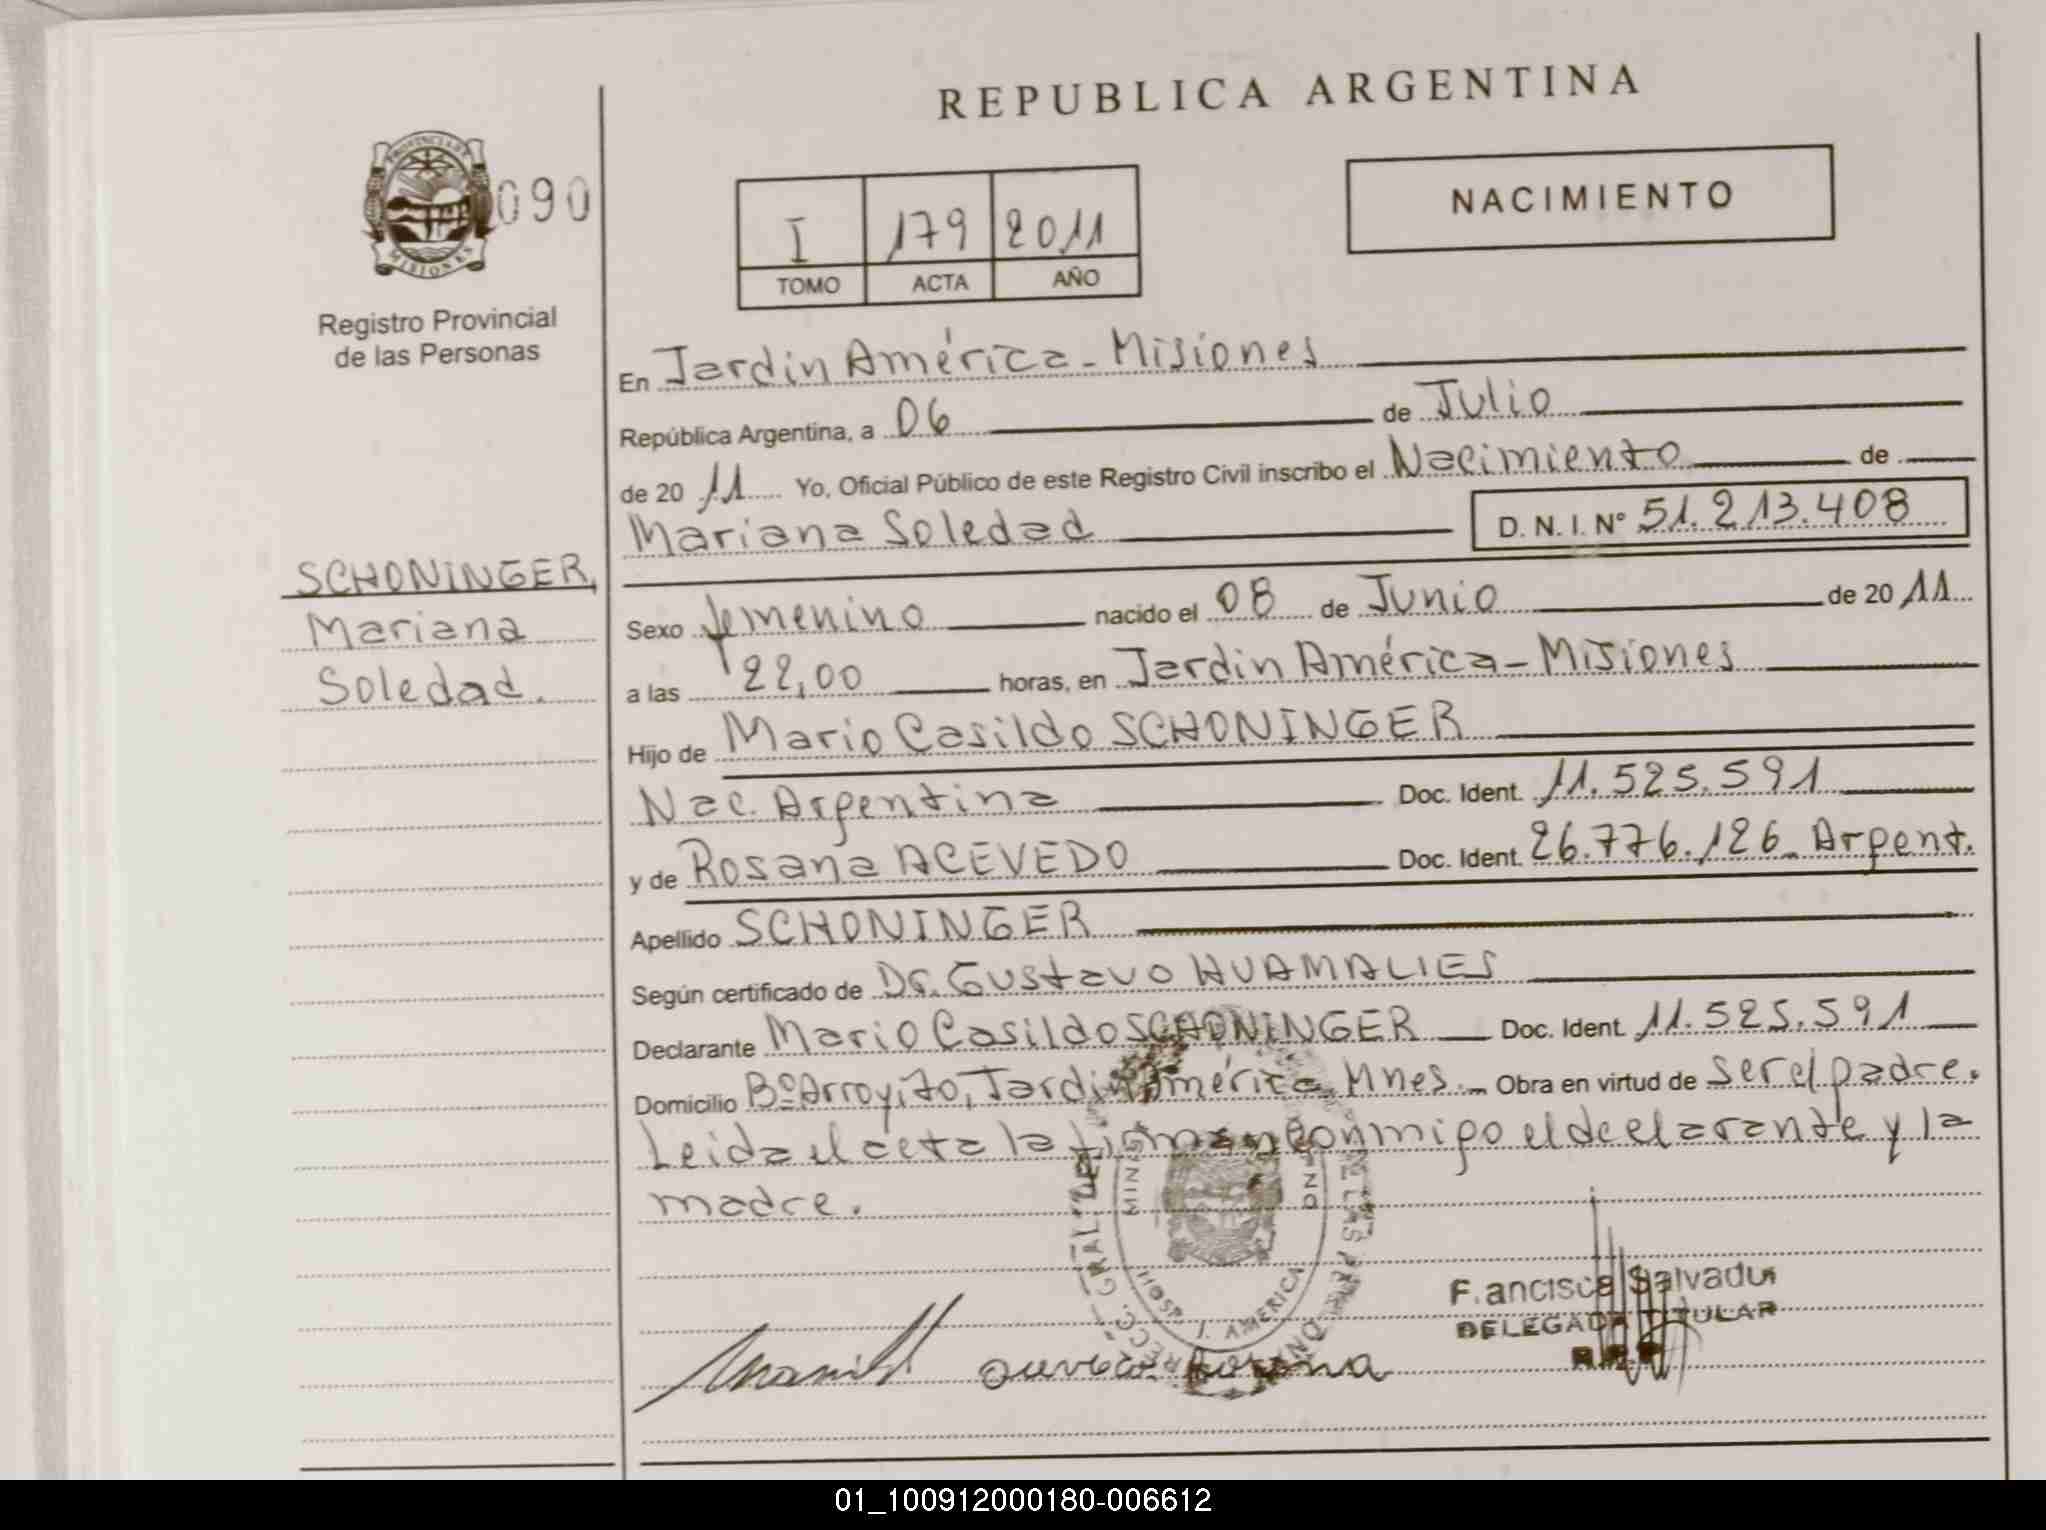 REPUBLICA ARGENTINA
PROVINCIA DE
MISIONES
090
Registro Provincial
de las Personas
I 179 2011
TOMO ACTA AÑO
NACIMIENTO
En Jardin América - Misiones
República Argentina, a 06 de Julio
de 20 11 Yo, Oficial Público de este Registro Civil inscribo el Nacimiento de
Mariana Soledad D. N. I. N° 51.213.408
SCHONINGER,
Mariana
Soledad.
Sexo femenino nacido el 08 de Junio de 20 11
a las 22,00 horas, en Jardin América - Misiones
Hijo de Mario Casildo SCHONINGER
Nac. Argentina Doc. Ident. 11.525.591
y de Rosana ACEVEDO Doc. Ident. 26.776.126 Argent.
Apellido SCHONINGER
Según certificado de Dr. Gustavo HUAMALIES
Declarante Mario Casildo SCHONINGER Doc. Ident. 11.525.591
Domicilio Bº Arroyito, Jardin América, Mnes. Obra en virtud de ser el padre.
Leida el acta la firman conmigo el declarante y la
madre.
HOSP. J. AMERICA
Francisco Salvador
DELEGADO TITULAR
01_100912000180-006612